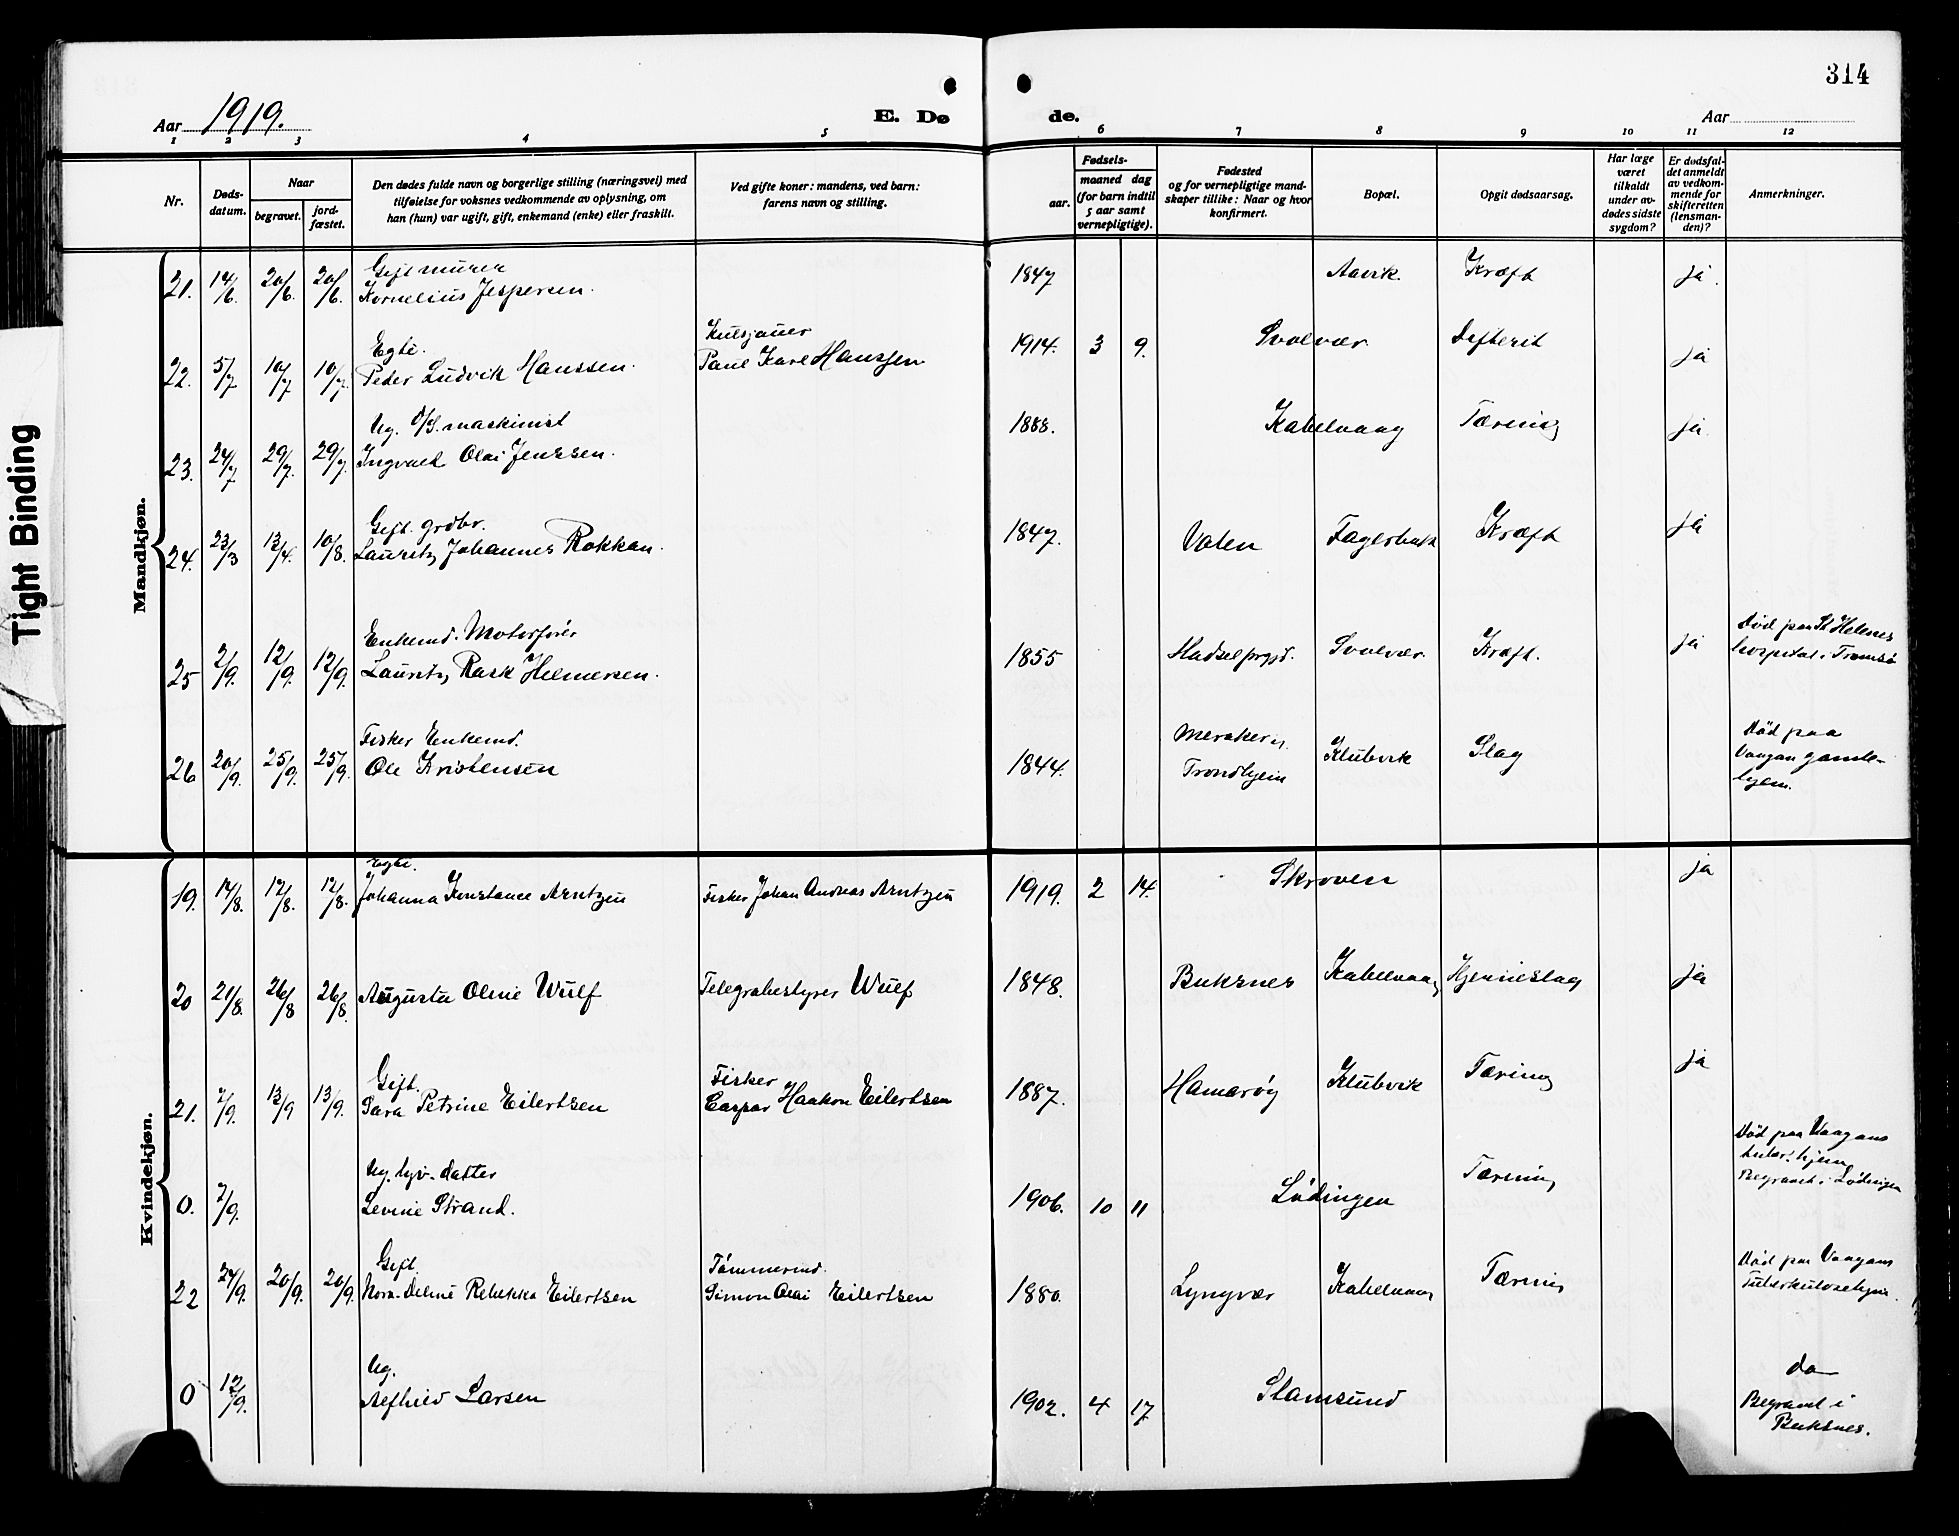 Tight Binding
314
Aar 1919.
E. Dø de.
Aar
1 2 3 4 5 6 7 8 9 10 11 12
Nr.
Døds-
datum.
Naar
begravet.
jord-
fæstet.
Den dødes fulde navn og borgerlige stilling (næringsvei) med
tilføielse for voksnes vedkommende av oplysning, om
han (hun) var ugift, gift, enkemand (enke) eller fraskilt.
Ved gifte koner: mandens, ved barn:
farens navn og stilling.
Fødsels-
aar.
maaned dag
(for barn indtil
5 aar samt
vernepligtige).
Fødested
og for vernepligtige mand-
skaper tillike: Naar og hvor
konfirmert.
Bopæl.
Opgit dødsaarsag.
Har læge
været
tilkaldt
under av-
dødes sidste
sygdom?
Er dødsfal-
det anmeldt
av vedkom-
mende for
skifteretten
(lensman-
den)?
Anmerkninger.
Mandkjøn.
Gift murer
21. 14/6. 20/6. 20/6. Kornelius Jespersen. 1847 Aavik. Kræft ja.
Egte. Kulsjauer
22. 5/7 10/7 10/7. Peder Ludvik Hanssen. Paul Karl Hanssen 1914. 3 9. Svolvær Difterit ja
Ug. D/S. maskinist
23. 24/7 29/7. 29/7. Ingvald Olai Jenssen. 1888. Kabelvaag Tæring ja.
Gift. grdbr.
24. 23/3 13/4. 10/8. Lauritz Johannes Rokkan. 1847. Valen Fagerbakk Kræft ja
Enkemd. Motorfører
25 2/9. 12/9. 12/9. Lauritz Rask Helmersen. 1855 Hadsel prgjd. Svolvær. Kræft. ja
Død paa St Helenes
hospital i Tromsø
Fisker Enkemd.
26 20/9. 25/9. 25/9. Ole Kristensen 1844. Meraker
Trondhjem Klubvik Slag
Død paa
Vaagan gamle-
hjem.
Kvindekjøn.
Egte.
19. 14/8. 17/8. 17/8. Johanna Konstance Arntzen Fisker Johan Andreas Arntzen 1919. 2 14. Skroven ja
20 21/8. 26/8 26/8. Augusta Oline Wulf Telegrabestyrer Wulf 1848. Buksnes Kabelvaag Hjerneslag ja
Gift. Fisker
21. 7/9. 13/9 13/9. Sara Petrine Eilertsen Caspar Haakon Eilertsen 1887. Hamarøy Klubvik Tæring ja
Ug. datter
0. 7/9. Levine Strand. 1906. 10 11 Lødingen Tæring
Død paa Vaagans
tuber. hjem
Begravet i Lødingen
Gift. Tømmermd.
22 24/9. 20/9. 20/9. Nora Rebekka Eilertsen Simon Olai Eilertsen 1880. Lyngvær Kabelvaag Tæring
Død paa Vaagans
Tuberkulosehjem.
Ug.
0 12/9. Alfhild Larsen 1902. 4 17 Stamsund
do
Begravet i
Buksnes.